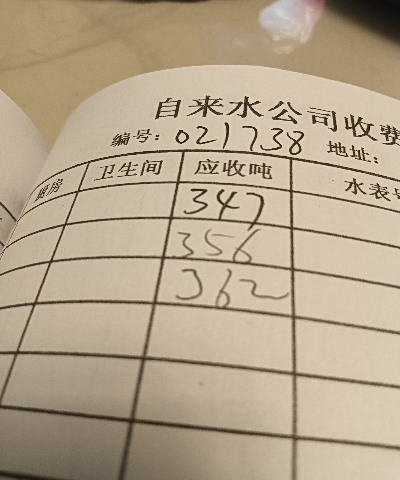 自来水公司收费
编号: 021738 地址:
厨房 卫生间 应收吨 水表号
347
356
362